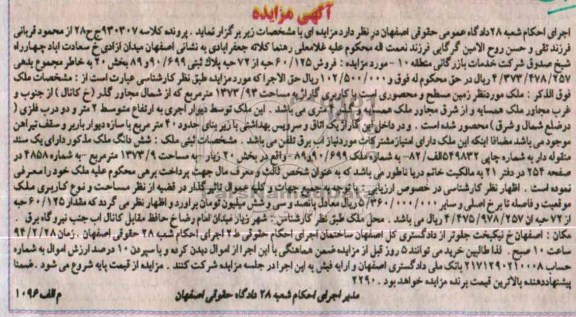 آگهی مزایده
اجرای احکام شعبه ۲۸ دادگاه عمومی حقوقی اصفهان در نظر دارد مزایده ای با مشخصات زیر برگزار نماید . پرونده کلاسه ۹۳۰۳۰۷ ج ح ۲۸ از محمود قربانی
فرزند تقی و حسن روح الامین گرگابی فرزند نعمت اله محکوم علیه غلامعلی رهنما کلاته جعفرآبادی به نشانی اصفهان میدان ازادی خ سعادت اباد چهارراه
شیخ صدوق شرکت خدمات بازرگانی منطقه ۱۰ - مورد مزایده : فروش ۶۰/۱۲۵ حبه از ۷۲ حبه پلاک ثبتی ۹۰/۶۹۹ و ۸۹ بخش ۲۰ به خاطر مجموع بدهی
۴/۳۷۳/۴۷۸/۲۵۷ ریال در حق محکوم له فوق و ۱۰۲/۵۰۰/۰۰۰ ریال حق الاجرا که مورد مزایده طبق نظر کارشناسی عبارت است از : مشخصات ملک
فوق الذکر : ملک موردنظر زمین مسطح و محصوری است با کاربری گاراژ به مساحت ۱۳۷۳/۹۳ که از شمال مجاور گذر (خ کانال ) از جنوب و
غرب مجاور ملک همسایه و از شرق مجاور ملک متری می باشد . این ملک توسط دیوار آجری به ارتفاع متوسط ۲ متر و دو درب فلزی (
درضلع شمال و شرق ) محصور شده است . و در داخل این گاراژ یک اتاق و سرویس بهداشتی با زیربنای حدود ۴۰ متر مربع با سازه دیوار باربر و سقف تیراهن
موجود می باشد مضافا اینکه این ملک دارای امتیاز مشترکات موردنیاز اب برق تلفن می باشد . مشخصات ثبتی ملک : شش دانگ ملک مذکور دارای یک سند
منگوله دار به شماره چاپی ۵۴۹۸۳۲ الف/۸۲- به شماره ملک ۹۰/۶۹۹ و ۸۹ - واقع در بخش ۲۰ زیار - به مساحت ۱۳۷۳/۹ مترمربع - به شماره ۴۸۵۸ در
صفحه ۲۵۴ در دفتر ۲۱ به مالکیت خاتم دریا ناطور می باشد که به عنوان شخص ثالث و معرف مال جهت پرداخت برهی محکوم علیه ملک خود را معرفی
نموده است . اظهار نظر کارشناسی در خصوص ارزیابی : با توجه به جمیع جهات و کلیه عوامل تاثیرگذار در قضیه از نظر مساحت و نوع کاربری ملک
موقعیت و فاصله تا برخی و سایر ۵/۳۶۰/۰۰۰/۰۰۰ ریال معادل پانصد و سی و شش میلیون تومان براورد و اظهار نظر می گردد که مقدار ۶۰/۱۲۵ حبه
از ۷۲ حبه ان ۴/۴۷۵/۹۷۸/۲۵۷ ریال می باشد . محل ملک طبق نظر کارشناسی : شهر زیار میدان امام رضا خ حافظ مقابل کانال اب جنب نیروگاه برق .
مکان : اصفهان خ نیکبخت جلوتر از دادگستری کل اصفهان ساختمان اجرای احکام حقوقی ط ۲ اجرای احکام شعبه ۲۸ حقوقی اصفهان . زمان ۹۴/۲/۲۸
ساعت ۱۰ صبح . لذا طالبین خرید می توانند ۵ روز قبل از مزایده ضمن هماهنگی با این اجرا از اموال دیدن کرده و با سپردن ۱۰ درصد ارزش اموال به شماره
حساب ۲۱۷۱۲۹۰۲۱۰۰۰۸ بانک ملی دادگستری اصفهان و ارایه فیش به این اجرا در جلسه مزایده شرکت کنند . مزایده از قیمت پایه شروع می شود . ضمنا
پیشنهاددهنده بالاترین قیمت برنده مزایده خواهد بود . ۲۲۹۰
مدیر اجرای احکام شعبه ۲۸ دادگاه حقوقی اصفهان
م الف ۱۰۹۶